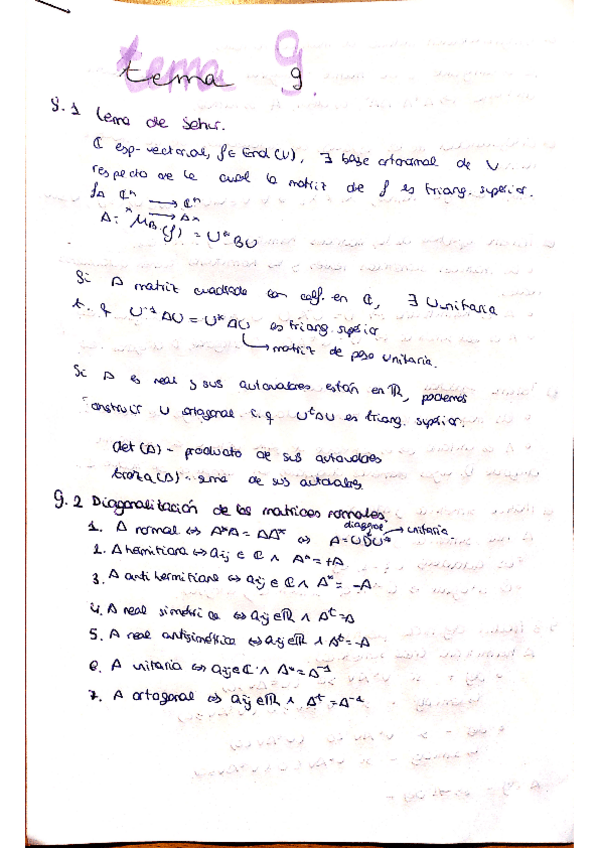 tema 9
9.1 Lema de Schur.
ℂ esp-vectorial, f ∈ End(V), ∃ base ortonormal de V
respecto de la cual la matriz de f es triang. superior.
fA ℂⁿ → ℂⁿ
x → Ax
A = M_B(f) = U*BU
Si A matriz cuadrada con coef. en ℂ, ∃ U unitaria
t. q U⁻¹AU = U*AU es triang. superior
→ matriz de paso unitaria.
Si A es real y sus autovalores están en ℝ, podemos
construir U ortogonal t. q UᵗAU es triang. superior.
det(A) - producto de sus autovalores
traza(A) - suma de sus autovalores
9.2 Diagonalización de las matrices normales.
1. A normal ⇔ A*A = AA* ⇔ A = UDU* diagonal → unitaria
2. A hermitiana ⇔ aij ∈ ℂ ∧ A* = +A
3. A antihermitiana ⇔ aij ∈ ℂ ∧ A* = -A
4. A real simétrica ⇔ aij ∈ ℝ ∧ Aᵗ = A
5. A real antisimétrica ⇔ aij ∈ ℝ ∧ Aᵗ = -A
6. A unitaria ⇔ aij ∈ ℂ ∧ A* = A⁻¹
7. A ortogonal ⇔ aij ∈ ℝ ∧ Aᵗ = A⁻¹